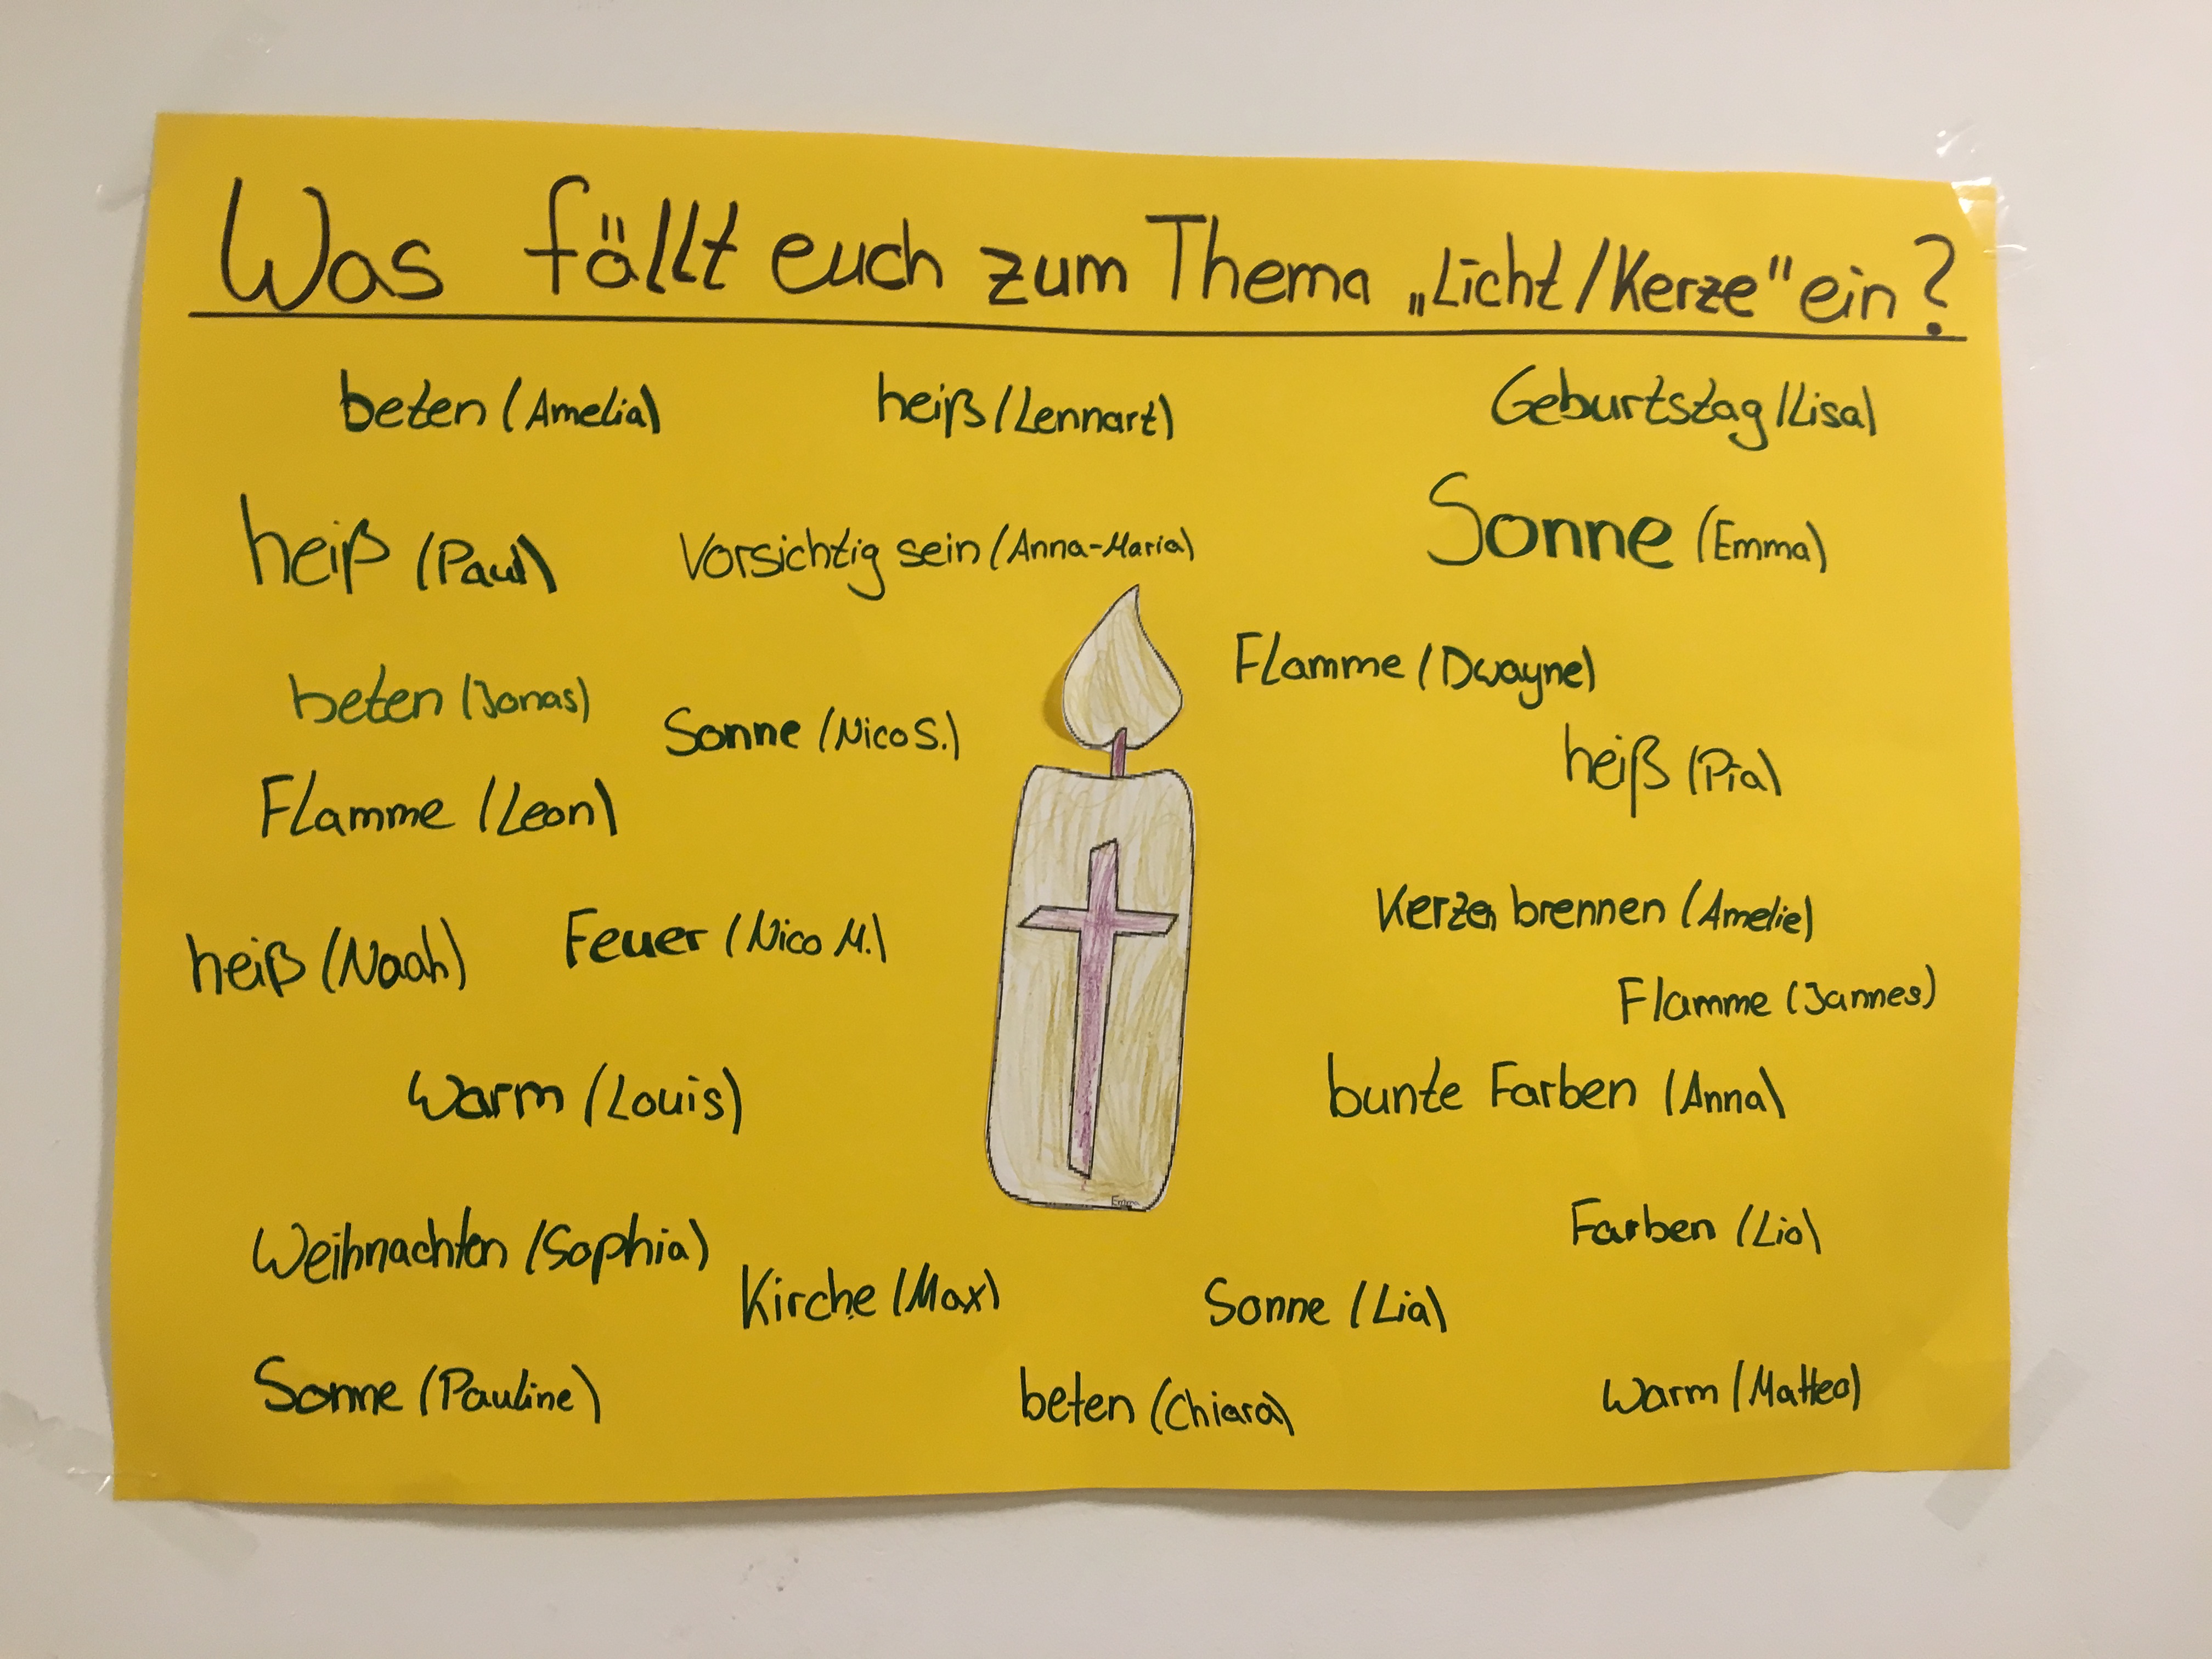 Was fällt euch zum Thema „Licht/Kerze" ein?
beten (Amelia)
heiß (Lennart)
Geburtstag (Lisa)
heiß (Paul)
Vorsichtig sein (Anna-Maria)
Sonne (Emma)
beten (Jonas)
Sonne (Nico S.)
Flamme (Dwayne)
heiß (Pia)
Flamme (Leon)
heiß (Noah)
Feuer (Nico M.)
Kerzen brennen (Amelie)
Flamme (Jannes)
Warm (Louis)
bunte Farben (Anna)
Weihnachten (Sophia)
Kirche (Max)
Sonne (Lia)
Farben (Lio)
Sonne (Pauline)
beten (Chiara)
Warm (Matteo)
Emma